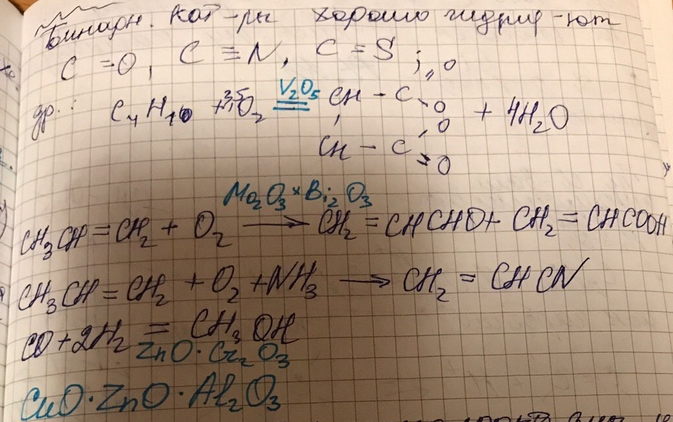 Бинарн. кат-ры хорошо гидрир-ют
C=O, C≡N, C=S;
др.: C₄H₁₀ + 3,5O₂ =(V₂O₅) CH - C=O
O + 4H₂O
CH - C=O
Mo₂O₃×Bi₂O₃
CH₃CH=CH₂ + O₂ → CH₂=CHCHO + CH₂=CHCOOH
CH₃CH=CH₂ + O₂ + NH₃ → CH₂=CHCN
CO + 2H₂ = CH₃OH
ZnO·Cr₂O₃
CuO·ZnO·Al₂O₃